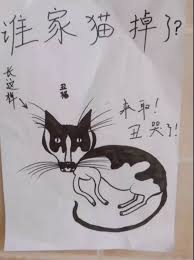 谁家猫掉了？
长这样
丑猫
来取！
丑哭了！